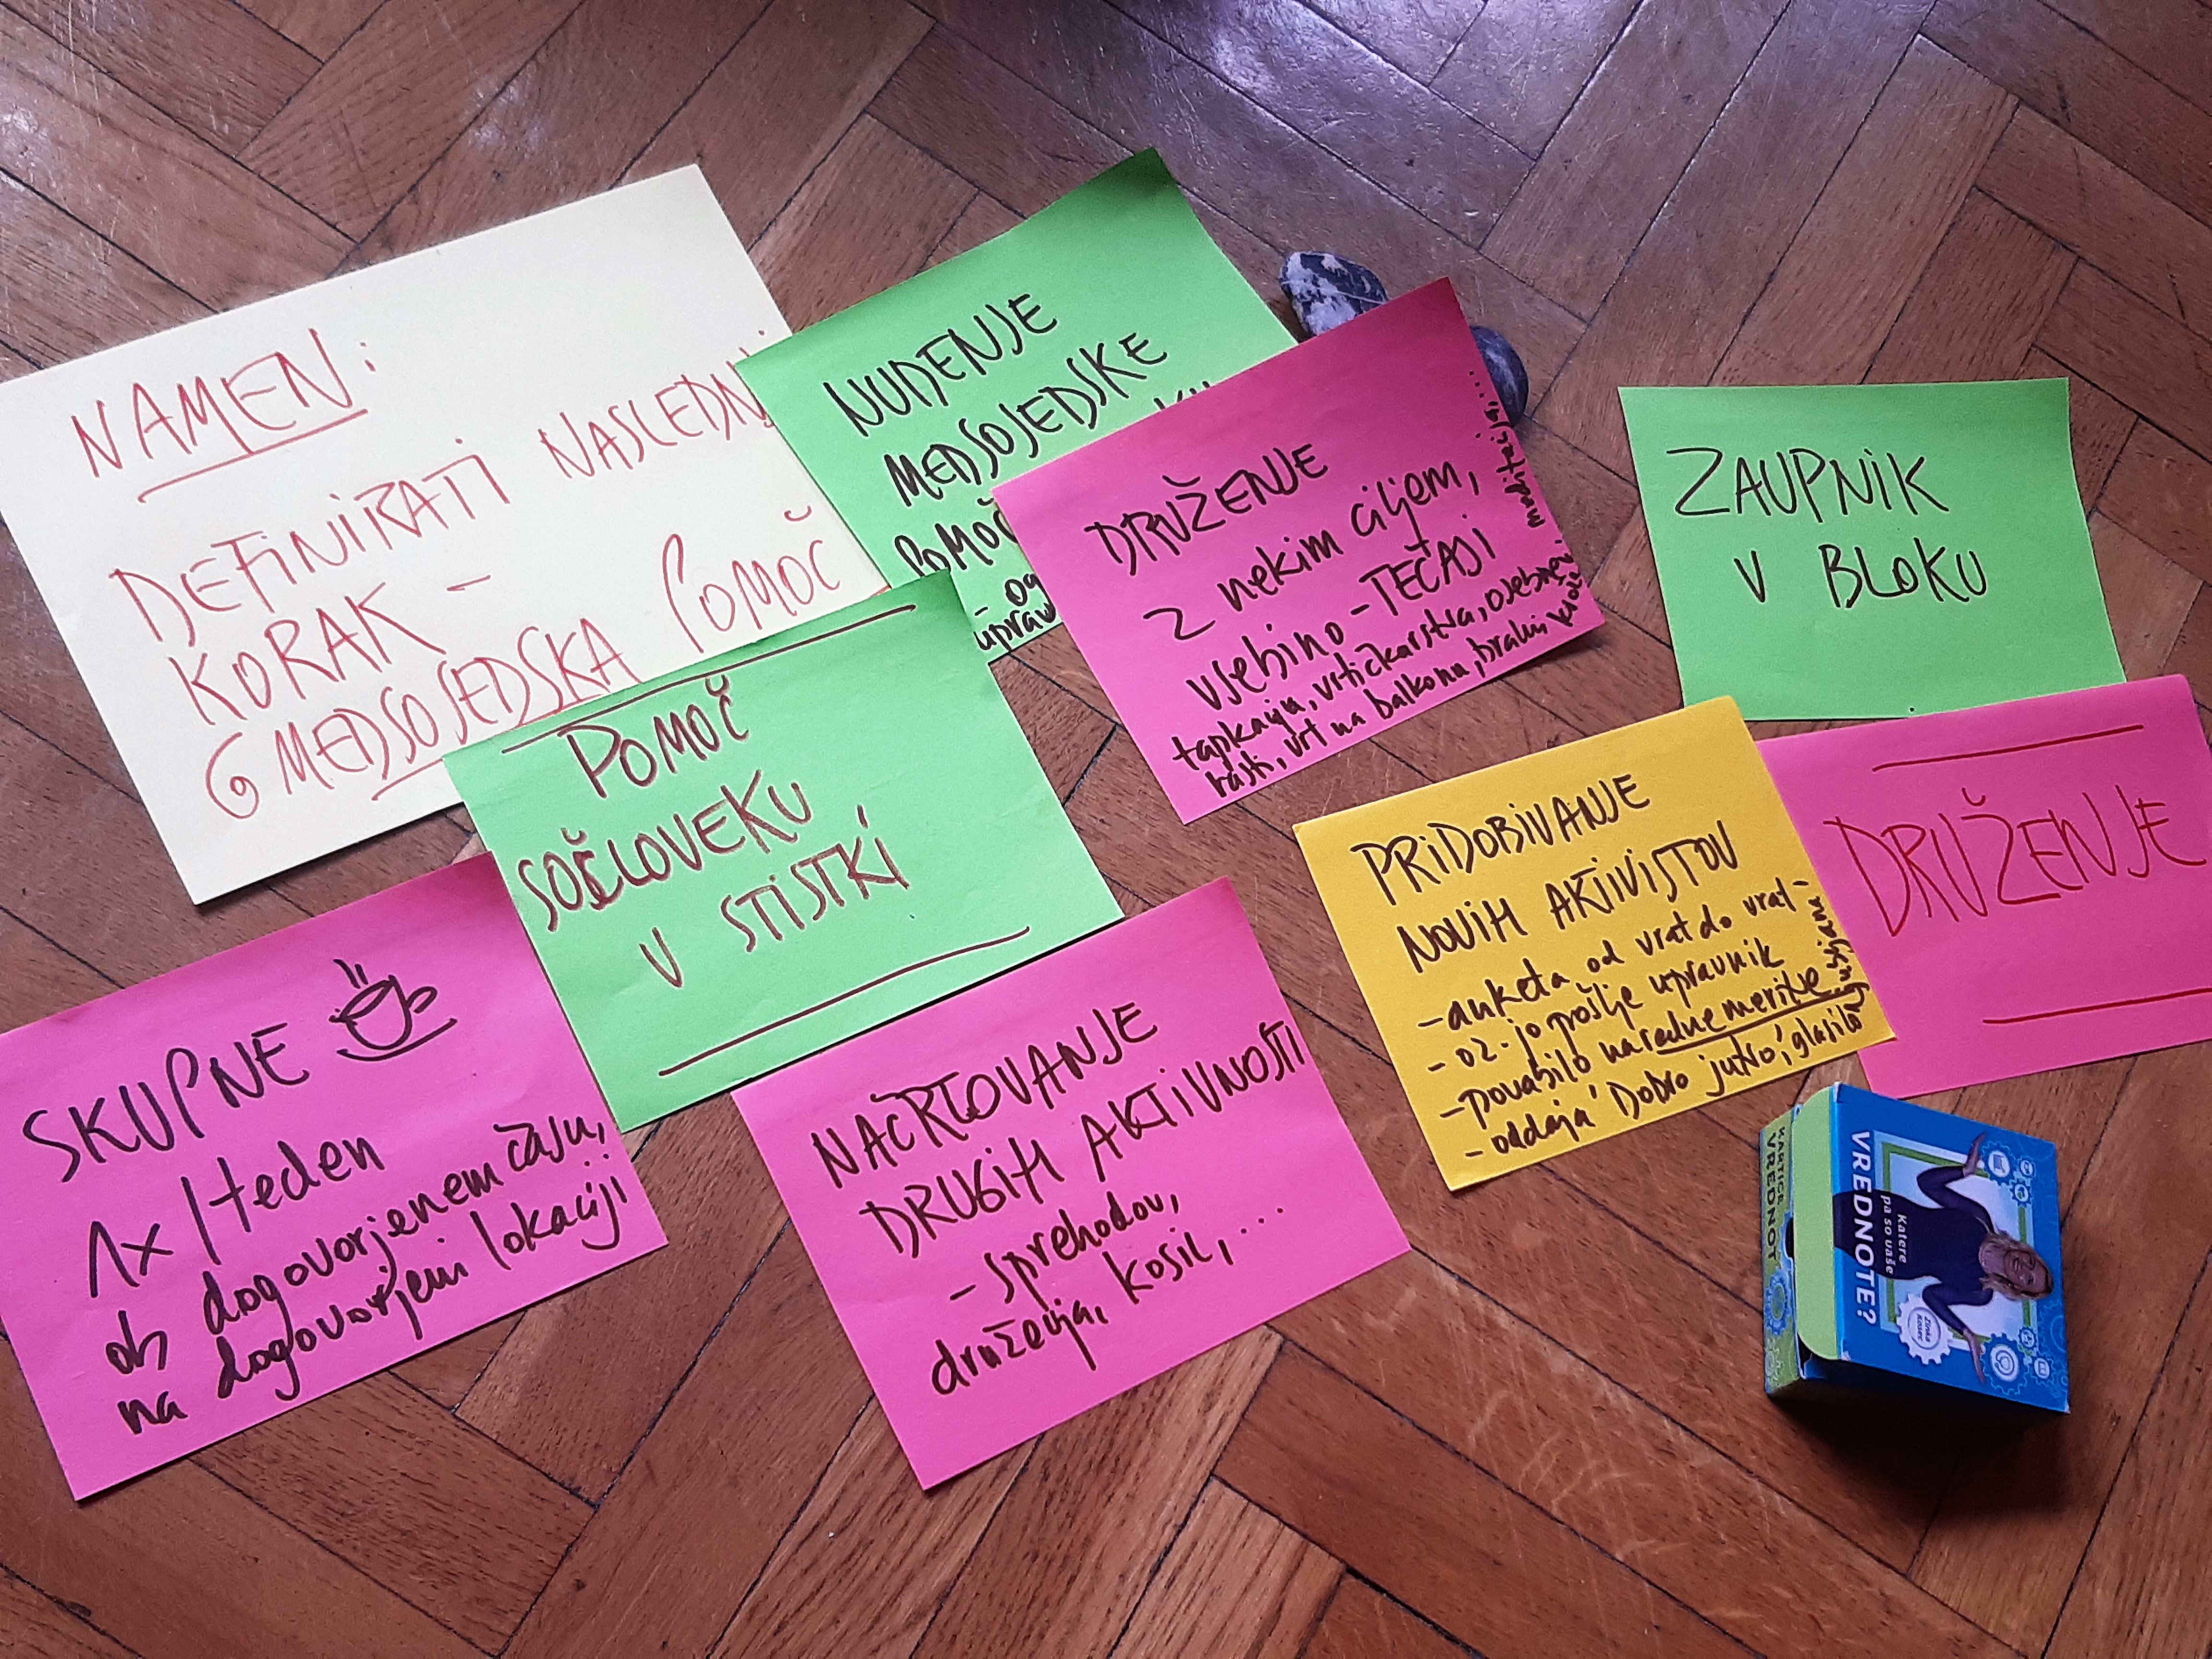 NAMEN:
DEFINIRATI NASLEDNJI
KORAK -
MEDSOSEDSKA POMOČ
NUDENJE
MEDSOSEDSKE
POMOČ
DRUŽENJE
z nekim ciljem,
vsebino - TEČAJI
tapkanja, vrtičkarstva, osebnei
rasti, vrt na balkonu, bralni
meditacija,....
ZAUPNIK
V BLOKU
POMOČ
SOČLOVEKU
V STISTKI
PRIDOBIVANJE
NOVIH AKTIVISTOV
- anketa od vrat do vrat -
- oz. jo pošlje upravnik
- povabilo na redne meritve
- oddaja 'Dobro jutro', glasilo
DRUŽENJE
SKUPNE
1x/teden
ob dogovorjenem času,
na dogovorjeni lokaciji
NAČRTOVANJE
DRUGIH AKTIVNOSTI
- sprehodov,
druženja, kosil, ...
KARTICE
VREDNOT
Katere
pa so vaše
VREDNOTE?